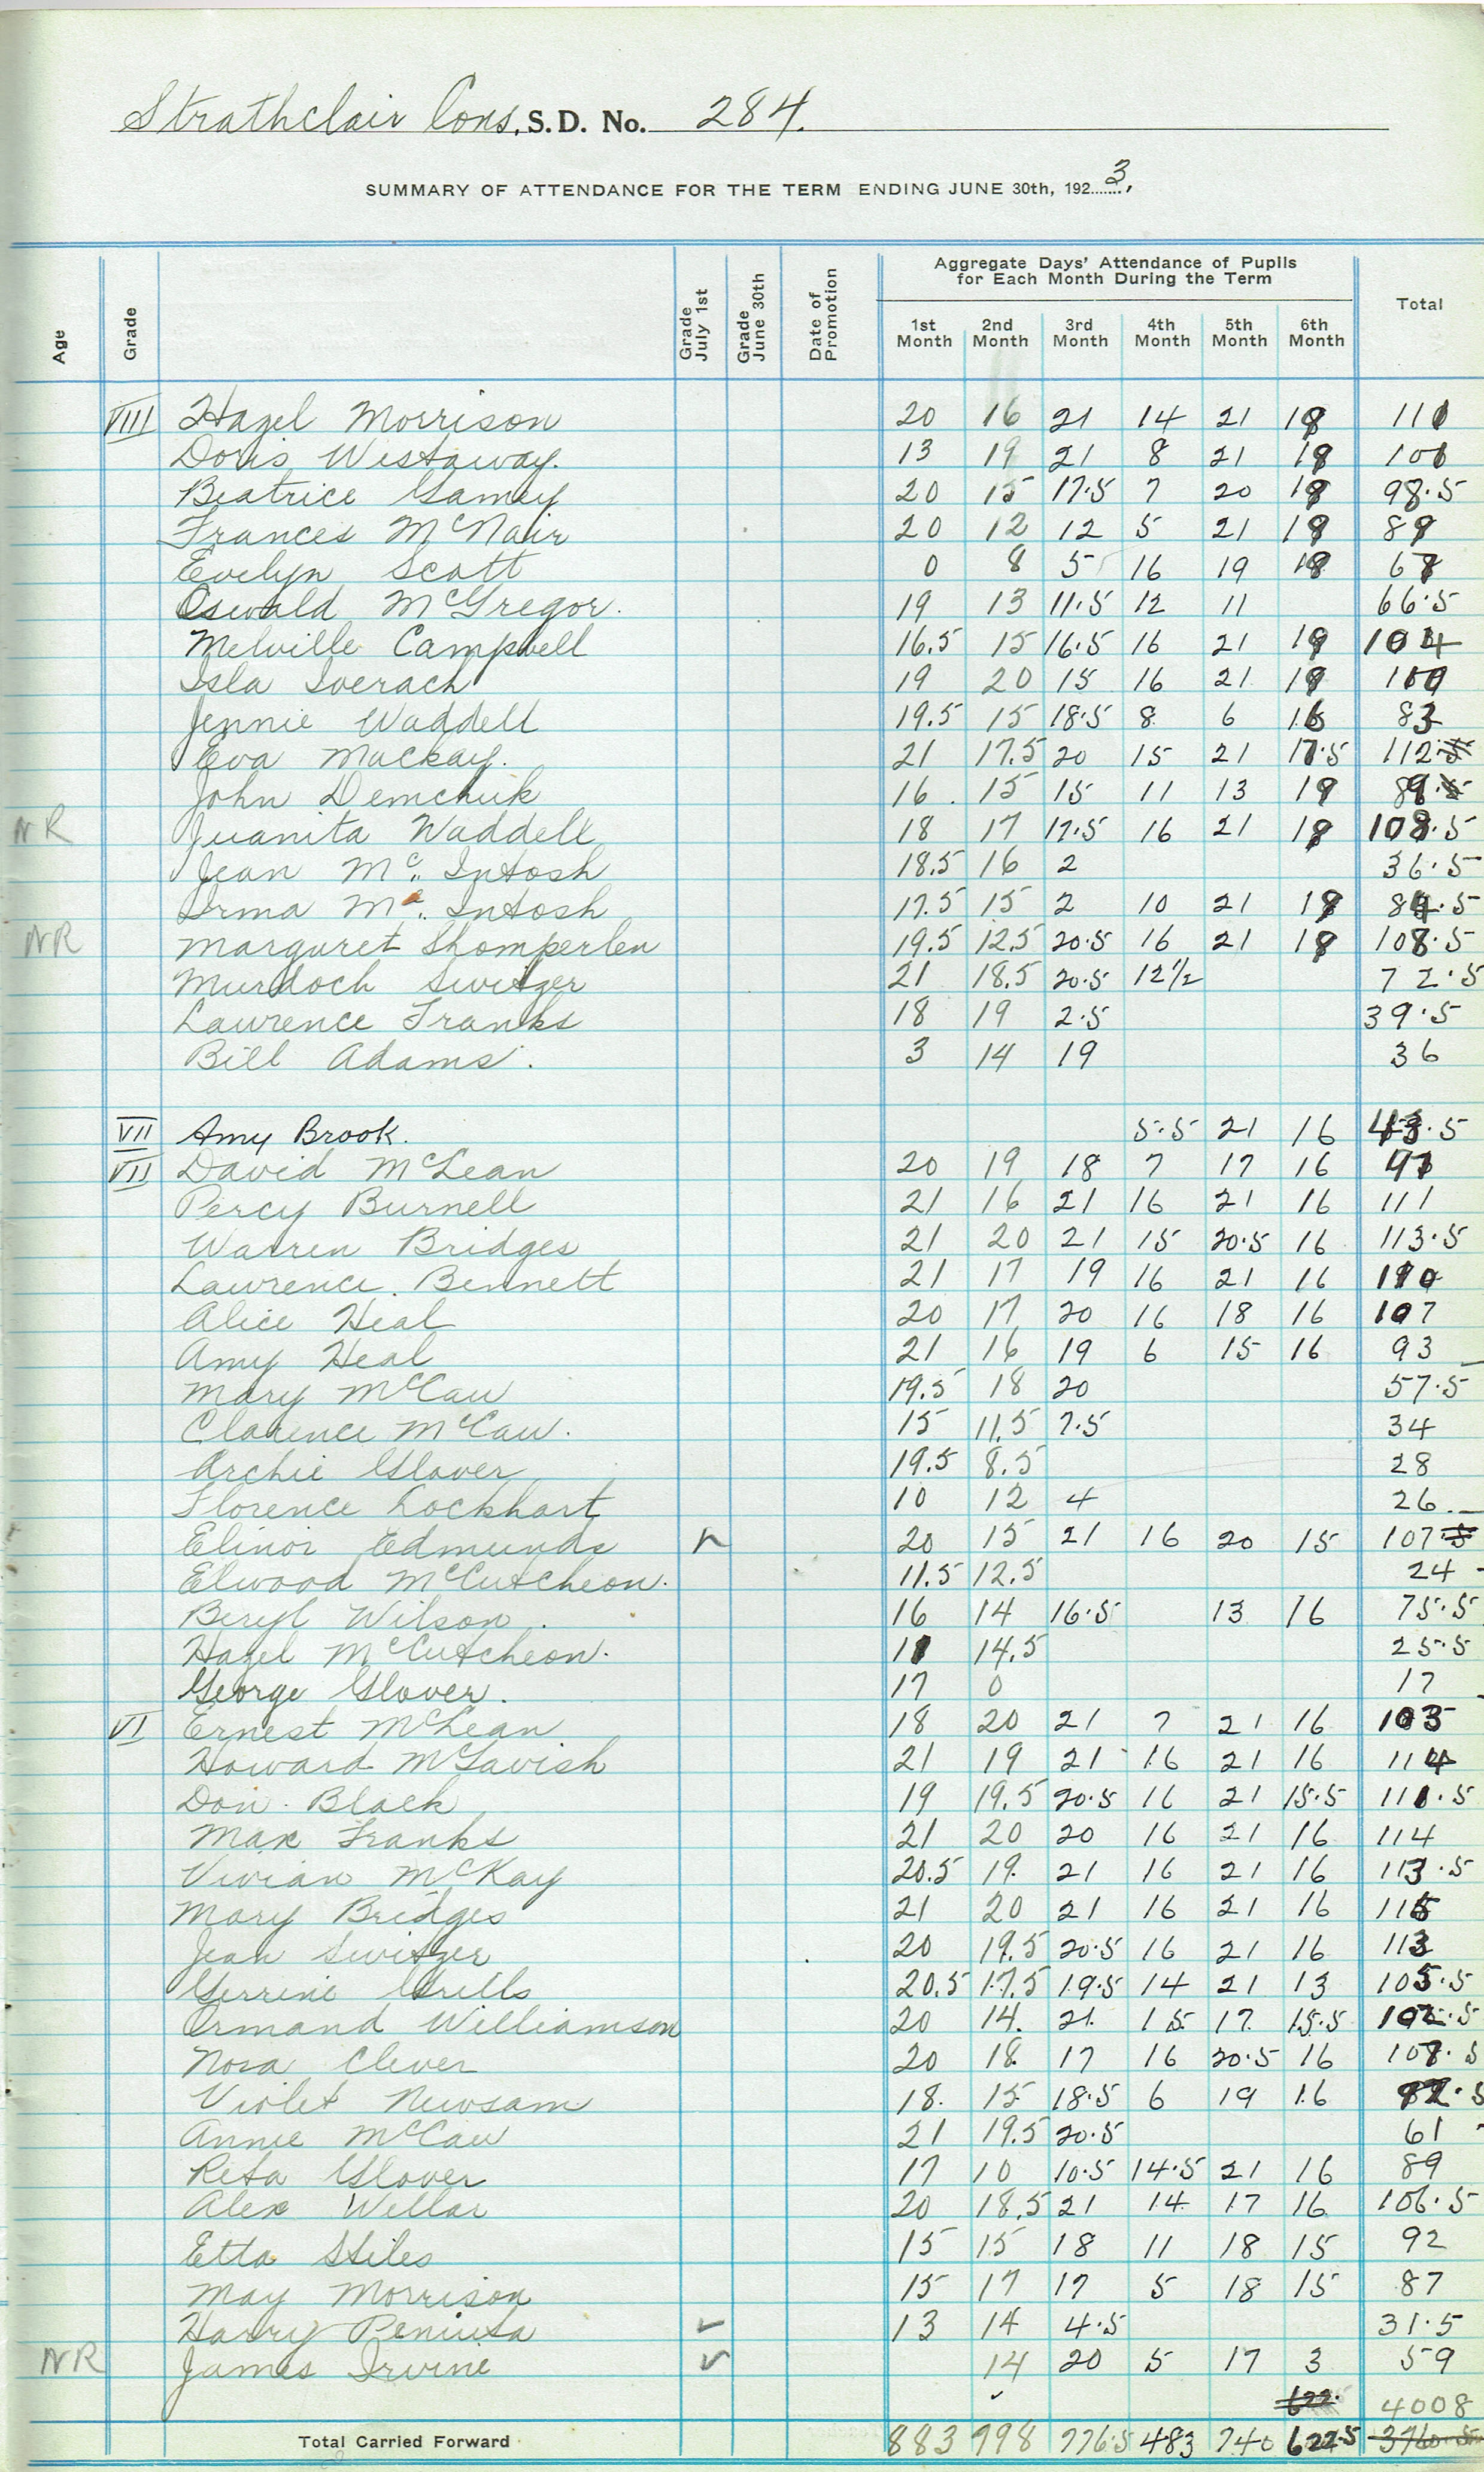 Strathclair Cons. S.D. No. 284.
SUMMARY OF ATTENDANCE FOR THE TERM ENDING JUNE 30th, 1923,
Age Grade Grade July 1st Grade June 30th Date of Promotion Aggregate Days' Attendance of Pupils for Each Month During the Term Total
1st Month 2nd Month 3rd Month 4th Month 5th Month 6th Month
VIII Hazel Morrison 20 16 21 14 21 18 110
Doris Westaway. 13 19 21 8 21 18 100
Beatrice Gamey 20 15 17.5 7 20 18 98.5
Frances McNair 20 12 12 5 21 19 89
Evelyn Scott 0 8 5 16 19 18
Oswald McGregor. 19 13 11.5 12 11 66.5
Melville Campbell 16.5 15 16.5 16 21 19 104
Isla Iverach 19 20 15 16 21 19
Jennie Waddell 19.5 15 18.5 8 6 16 83
Eva Mackay. 21 17.5 20 15 21 17.5 112
John Demchuk 16 15 15 11 13 19 89
NR Juanita Waddell 18 17 17.5 16 21 18 108.5
Jean Mc. Intosh 18.5 16 2 36.5
Irma Mc. Intosh 17.5 15 2 10 21 18 84.5
NR Marguret Shomperlen 19.5 12.5 20.5 16 21 18 108.5
Murdoch Switzer 21 18.5 20.5 12½ 72.5
Lawrence Franks 18 19 2.5 39.5
Bill Adams. 3 14 19 36
VII Amy Brook. 5.5 21 16
VII David McLean 20 19 18 7 17 16 97
Percy Burnell 21 16 21 16 21 16 111
Warren Bridges 21 20 21 15 20.5 16 113.5
Lawrence Bennett 21 17 19 16 21 16 110
Alice Heal 20 17 20 16 18 16 107
Amy Heal 21 16 19 6 15 16 93
Mary McCaw 19.5 18 20 57.5
Clarence McCaw. 15 11.5 7.5 34
Archie Glover 19.5 8.5 28
Florence Lockhart 10 12 4 26
Elinor Edmunds 20 15 21 16 20 15 107
Elwood McCutcheon. 11.5 12.5 24
Beryl Wilson. 16 14 16.5 13 16 75.5
Hazel McCutcheon. 11 14.5 25.5
George Glover. 17 0 17
VI Ernest McLean 18 20 21 7 21 16 103
Howard McTavish 21 19 21 16 21 16 114
Don Black 19 19.5 20.5 16 21 15.5 111.5
Max Franks 21 20 20 16 21 16 114
Vivian McKay 20.5 19 21 16 21 16 113.5
Mary Bridges 21 20 21 16 21 16 115
Jean Switzer 20 19.5 20.5 16 21 16 113
Gerrine Grills 20.5 17.5 19.5 14 21 13 105.5
Ormand Williamson 20 14. 21. 15 17. 15.5 102.5
Nora Clever 20 18 17 16 20.5 16 107.5
Violet Newsam 18. 15 18.5 6 19 16 92.5
Annie McCaw 21 19.5 20.5 61
Reta Glover 17 10 10.5 14.5 21 16 89
Alex Wellar 20 18.5 21 14 17 16 106.5
Etta Stiles 15 15 18 11 18 15 92
May Morrison 15 17 17 5 18 15 87
Harry Peniuta 13 14 4.5 31.5
NR James Irvine 14 20 5 17 3 59
622. 4008
Total Carried Forward 883 798 776.5 483 740 622.5